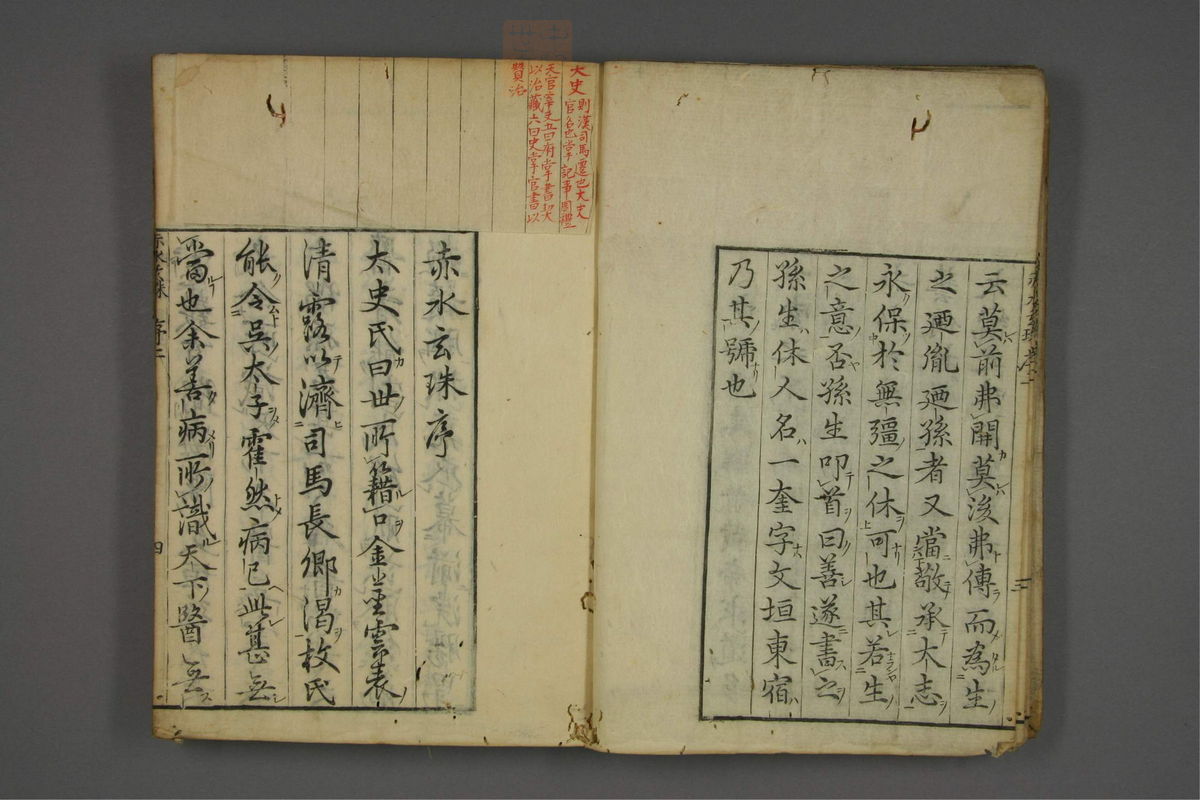 云莫前弗開莫後弗傳而為生
之迺胤迺孫者又當敬承太志
永保於無彊之休可也其若生
之意否孫生叩首曰善遂書之
孫生休人名一奎字文垣東宿
乃其號也
大史則漢司馬遷也大史
官名也掌記事周禮
天官宰史五曰府掌書契
以治藏六曰史掌官書以
贊治
赤水玄珠序
太史氏曰世所籍口金莖雲表
清露以濟司馬長卿渇枚氏
能令吳太子霍然病已此甚無
當也余善病所識天下醫無
赤水玄珠 序二 四